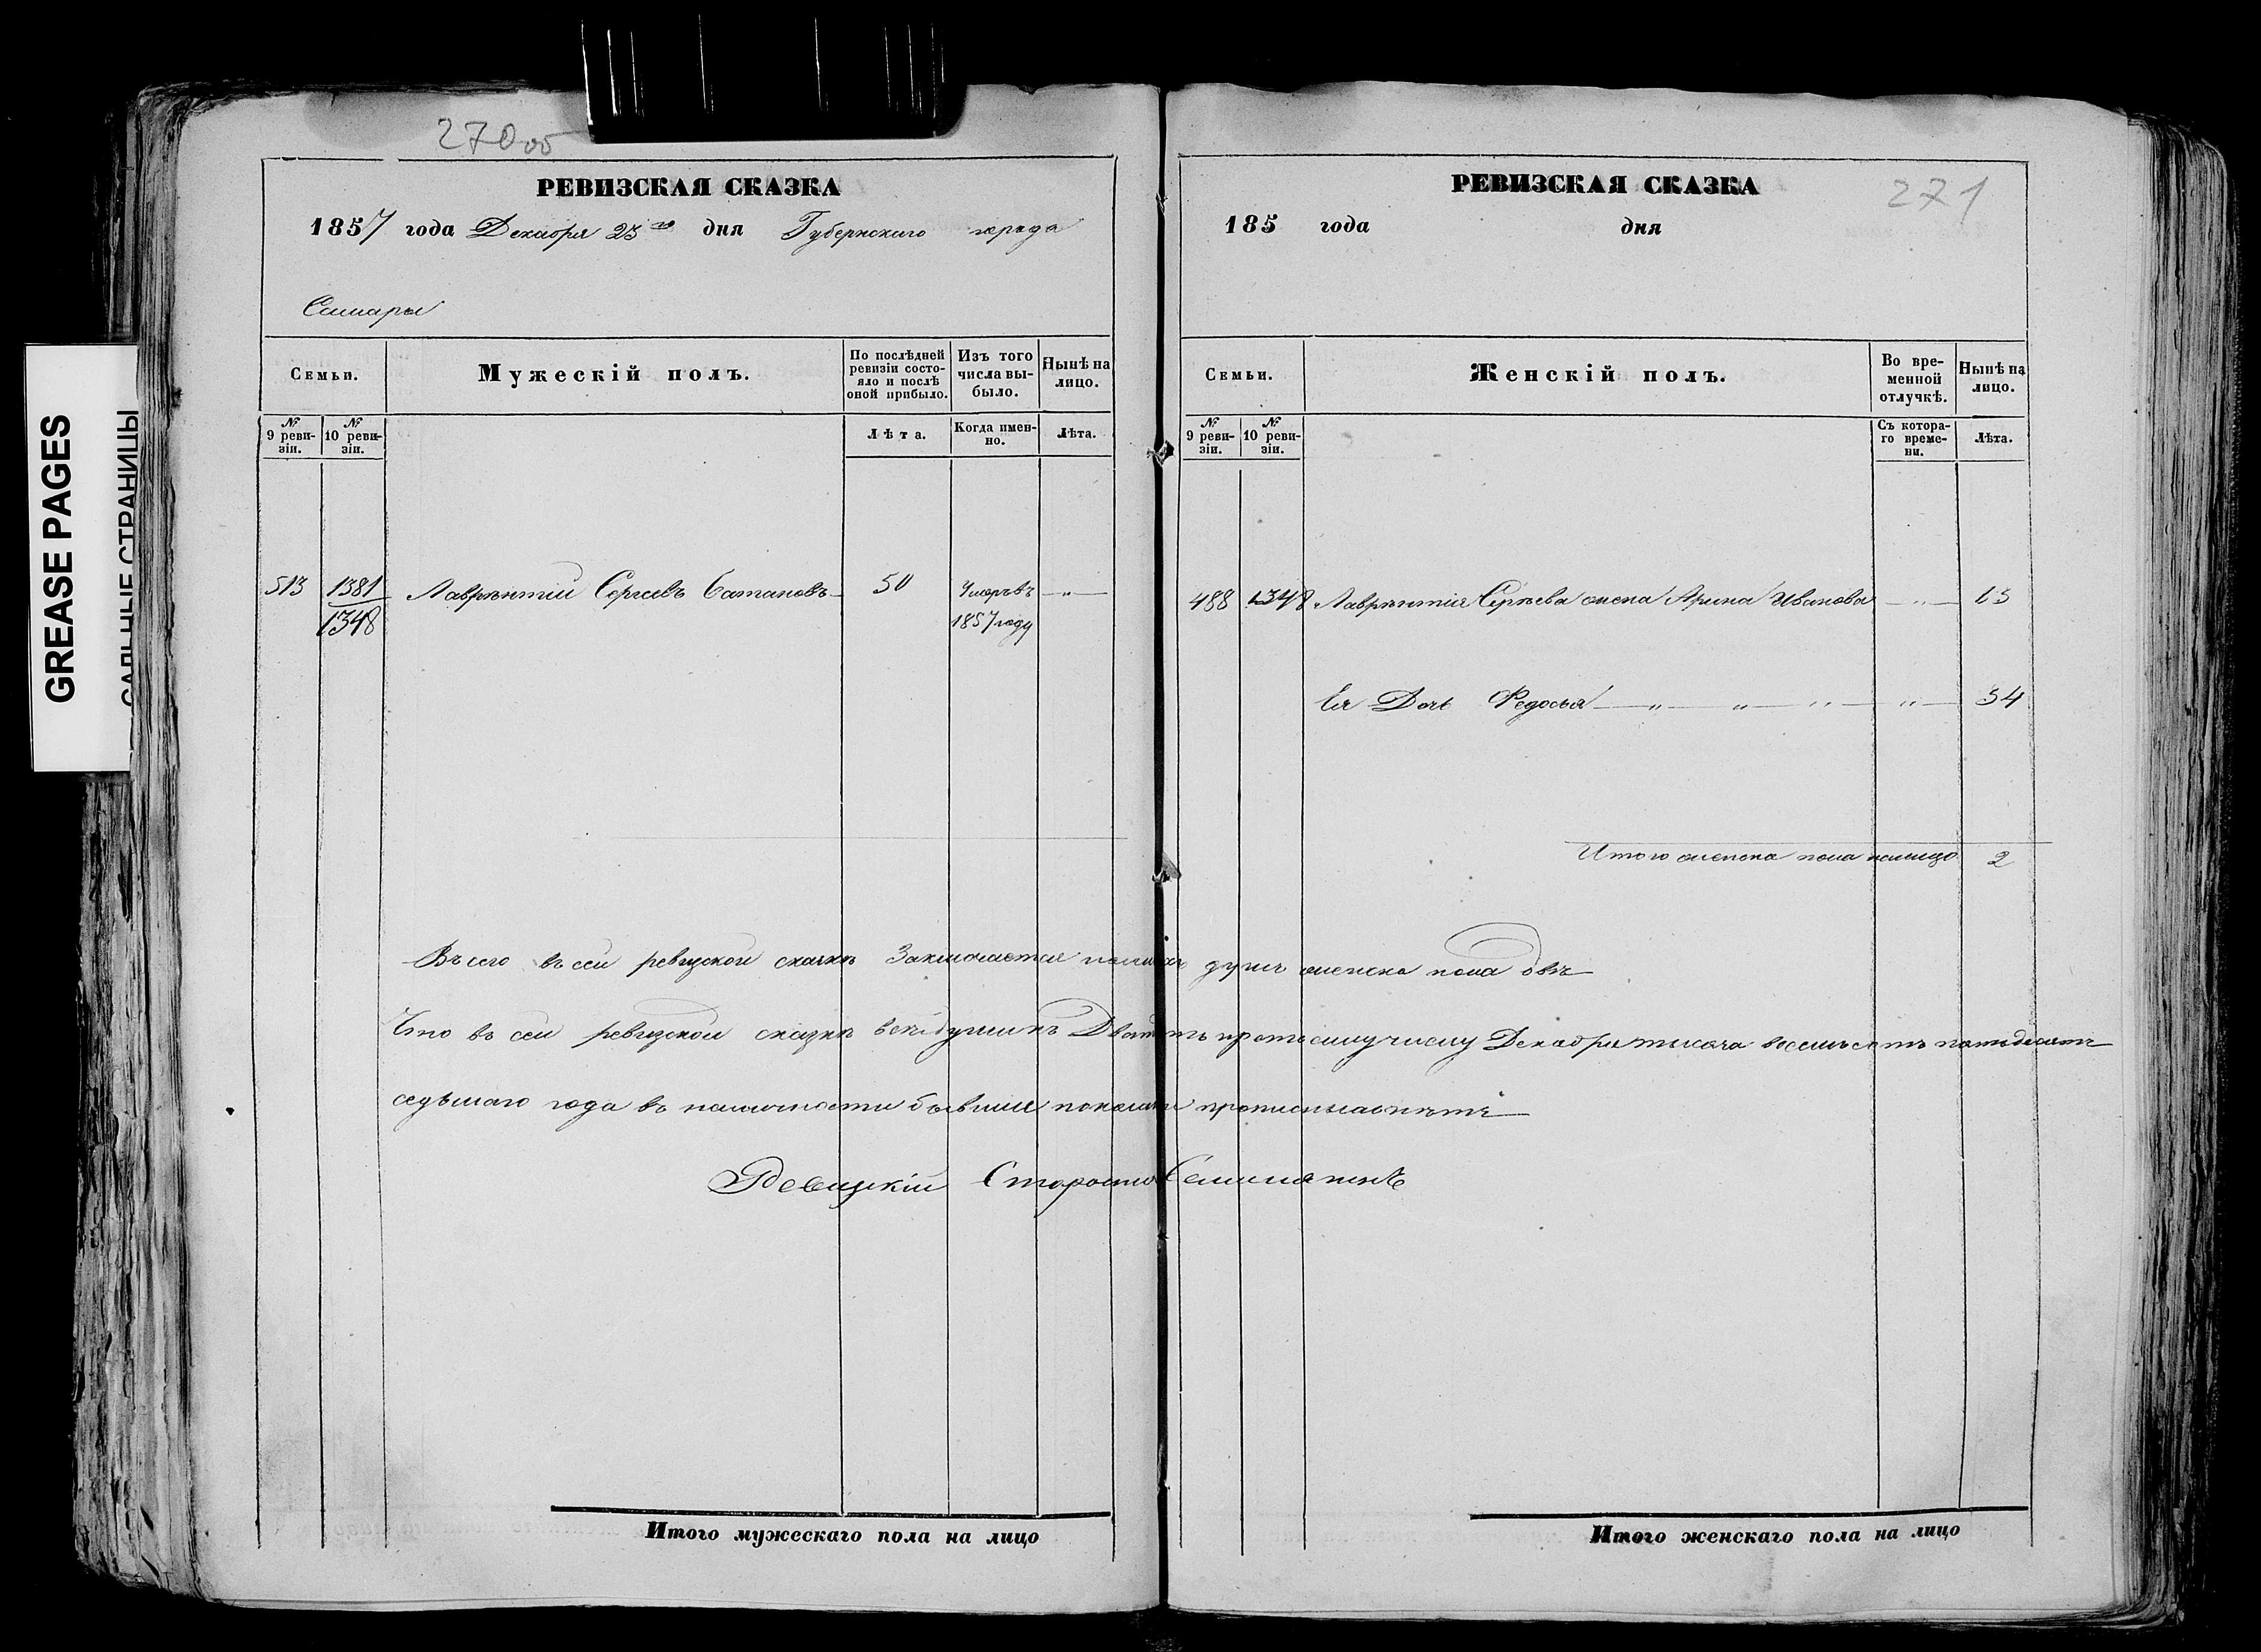 270 об
РЕВИЗСКАЯ СКАЗКА
1857 года Декабря 23го дня Губернскаго города
Самары
Семьи.
Мужескій полъ.
По послѣдней ревизіи состояло и послѣ оной прибыло.
Изъ того числа выбыло.
Нынѣ на лицо.
№ 9 ревизіи.
№ 10 ревизіи.
Лѣта.
Когда именно.
Лѣта.
513 1381 Лаврентий Сергеевъ 50 Умеръ въ
1348 1857 году
271
РЕВИЗСКАЯ СКАЗКА
185 года дня
Семьи.
Женскій полъ.
Во временной отлучкѣ.
Нынѣ на лицо.
№ 9 ревизіи.
№ 10 ревизіи.
Съ котораго времени.
Лѣта.
488 1348 Арина Иванова
Ея Дочь Федосья 34
Итого женска пола налицо 2
Всего въ сей ревизской сказкѣ Заключается душъ женска пола двѣ
Что въ сей ревизской сказкѣ Декабря тысяча восемьсотъ пятьдесятъ
седьмаго года въ наличности бывшие
Ревизкій Староста
Итого мужескаго пола на лицо
Итого женскаго пола на лицо
GREASE PAGES
САЛЬНЫЕ СТРАНИЦЫ